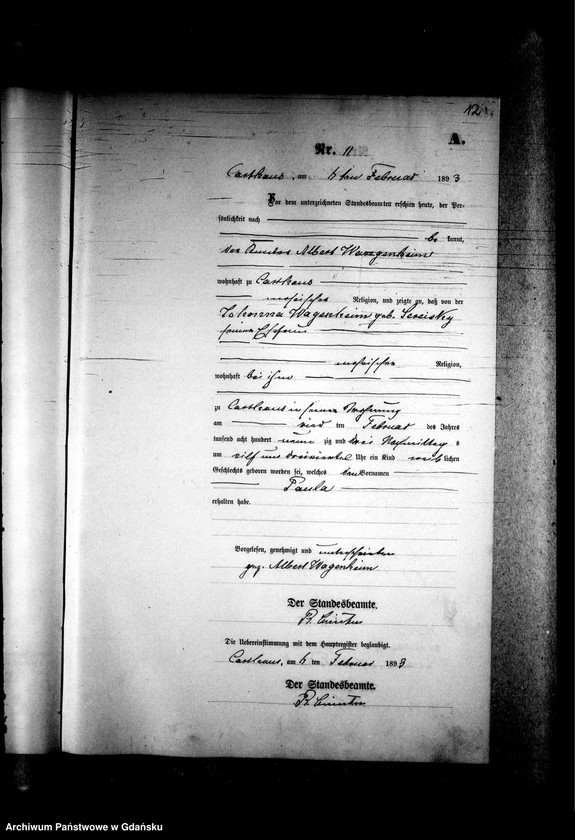 12
A.
Nr. 11
Carthaus, am 6 ten Februar 1893
Vor dem unterzeichneten Standesbeamten erschien heute, der Per-
sönlichkeit nach
be kannt,
der Albert Wagenheim
wohnhaft zu Carthaus
mosaischer Religion, und zeigte an, daß von der
Johanna Wagenheim geb.
seiner Ehefrau
mosaischer Religion,
wohnhaft bei ihm
zu Carthaus in seiner Wohnung
am vier ten Februar des Jahres
tausend acht hundert neun zig und drei Nachmittag s
um elf und dreiviertel Uhr ein Kind weib lichen
Geschlechts geboren worden sei, welches den Vornamen
Paula
erhalten habe.
Vorgelesen, genehmigt und unterschrieben
gez. Albert Wagenheim
Der Standesbeamte.
Die Uebereinstimmung mit dem Hauptregister beglaubigt.
Carthaus, am 6 ten Februar 1893
Der Standesbeamte.
Archiwum Państwowe w Gdańsku